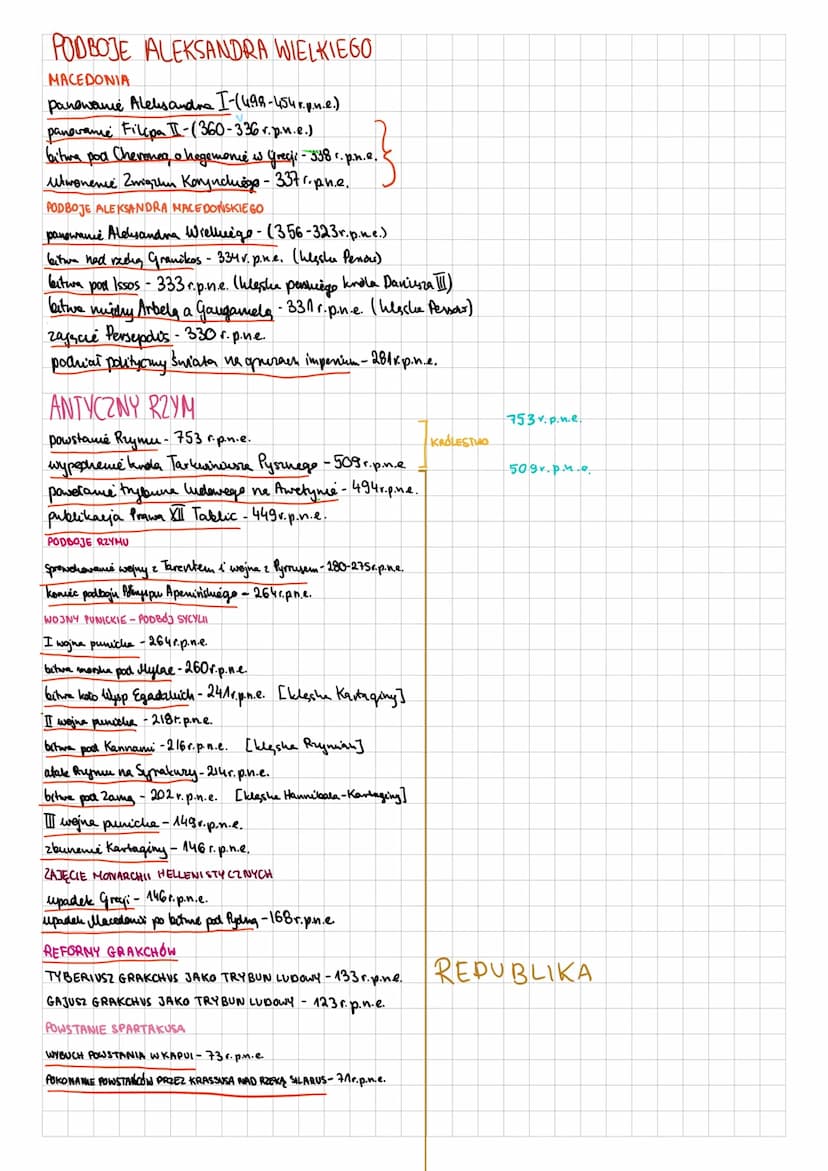 PODBOJE ALEKSANDRA WIELKIEGO
MACEDONIA
panowanie Aleksandra I - (498-454 r.p.n.e.)
panowanie Filipa II - (360-336 r.p.n.e.)
bitwa pod Cheroneą o hegemonię w Grecji - 338 r.p.n.e.
utworzenie Związku Korynckiego - 337 r.p.n.e.
PODBOJE ALEKSANDRA MACEDOŃSKIEGO
panowanie Aleksandra Wielkiego - (356-323 r.p.n.e.)
bitwa nad rzeką Granikos - 334 r.p.n.e. (klęska Persów)
bitwa pod Issos - 333 r.p.n.e. (klęska perskiego króla Dariusza III)
bitwa między Arbelą a Gaugamelą - 331 r.p.n.e. (klęska Persów)
zajęcie Persepolis - 330 r.p.n.e.
podział polityczny świata na gruzach imperium - 281 r.p.n.e.
ANTYCZNY RZYM
753 r.p.n.e.
powstanie Rzymu - 753 r.p.n.e.
KRÓLESTWO
wypędzenie króla Tarkwiniusza Pysznego - 509 r.p.n.e
509 r.p.n.e.
powołanie trybuna ludowego na Awentynie - 494 r.p.n.e.
publikacja Prawa XII Tablic - 449 r.p.n.e.
PODBOJE RZYMU
sprowokowanie wojny z Tarentem i wojna z Pyrrusem - 280-275 r.p.n.e.
koniec podboju Półwyspu Apenińskiego - 264 r.p.n.e.
WOJNY PUNICKIE - PODBÓJ SYCYLII
I wojna punicka - 264 r.p.n.e.
bitwa morska pod Mylae - 260 r.p.n.e.
bitwa koło Wysp Egadzkich - 241 r.p.n.e. [klęska Kartaginy]
II wojna punicka - 218 r.p.n.e.
bitwa pod Kannami - 216 r.p.n.e. [klęska Rzymian]
atak Rzymu na Syrakuzy - 214 r.p.n.e.
bitwa pod Zamą - 202 r.p.n.e. [klęska Hannibala - Kartaginy]
III wojna punicka - 149 r.p.n.e.
zburzenie Kartaginy - 146 r.p.n.e.
ZAJĘCIE MONARCHII HELLENISTYCZNYCH
upadek Grecji - 146 r.p.n.e.
upadek Macedonii po bitwie pod Pydną - 168 r.p.n.e
REFORMY GRAKCHÓW
TYBERIUSZ GRAKCHUS JAKO TRYBUN LUDOWY - 133 r.p.n.e.
REPUBLIKA
GAJUSZ GRAKCHUS JAKO TRYBUN LUDOWY - 123 r.p.n.e.
POWSTANIE SPARTAKUSA
WYBUCH POWSTANIA W KAPUI - 73 r.p.n.e
POKONANIE POWSTAŃCÓW PRZEZ KRASSUSA NAD RZEKĄ SILARUS - 71 r.p.n.e.